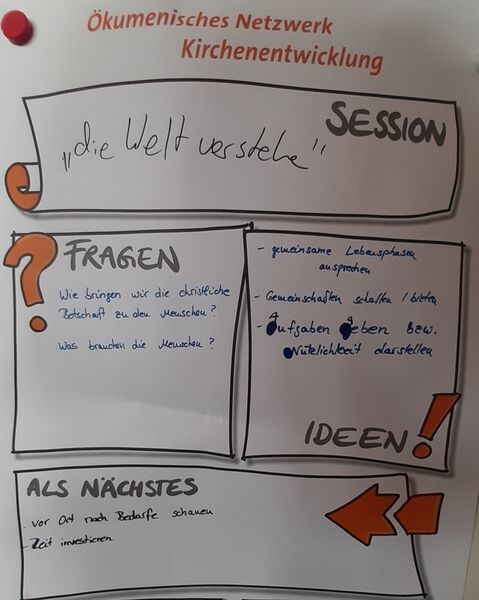 Ökumenisches Netzwerk
Kirchenentwicklung
SESSION
„die Welt verstehe"
FRAGEN
Wie bringen wir die christliche
Botschaft zu den Menschen?
Was brauchen die Menschen?
- gemeinsame Lebensphasen
ansprechen
- Gemeinschaften schaffen / bieten
- Aufgaben geben bzw.
Nützlichkeit darstellen
IDEEN!
ALS NÄCHSTES
- vor Ort nach Bedarfe schauen
- Zeit investieren